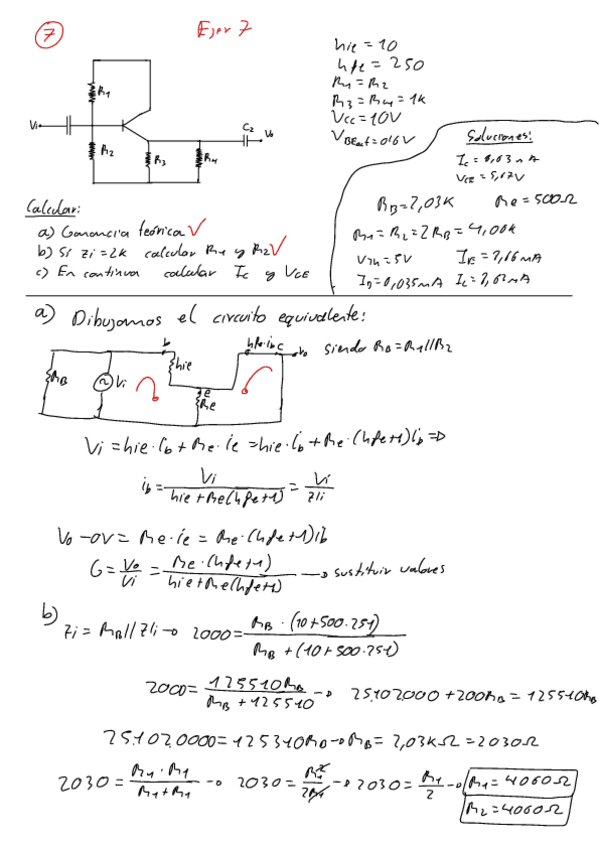 7 Ejer 7
hie = 10
hfe = 250
R1 = R2
R3 = R4 = 1k
Vcc = 10V
VBEact = 0'6V
R1
Vi
R2
R3
R4
C2
Vo
Soluciones:
VCE = 5,17V
RB = 2,03K Re = 500Ω
R1 = R2 = 2RB = 4,06k
Vth = 5V IE = 7,66mA
IB = 0,035mA IC = 7,62mA
Calcular:
a) Ganancia teórica ✓
b) Si zi = 2k calcular R1 y R2 ✓
c) En continua calcular Ic y VCE
a) Dibujamos el circuito equivalente:
b hfe·ib c Vo siendo RB = R1//R2
RB Vi hie e Re
Vi = hie·ib + Re·ie = hie·ib + Re·(hfe+1)ib =>
ib = Vi / hie+Re(hfe+1) = Vi / z1i
Vo - 0V = Re·ie = Re·(hfe+1)ib
G = Vo / Vi = Re·(hfe+1) / hie+Re(hfe+1) → sustituir valores
b)
zi = RB // z1i → 2000 = RB · (10+500·251) / RB + (10+500·251)
2000 = 125510RB / RB + 125510 → 25.102.000 + 200RB = 125510RB
25.102.0000 = 125310RB → RB = 2,03KΩ = 2030Ω
2030 = R1 · R1 / R1 + R1 → 2030 = R1² / 2R1 → 2030 = R1 / 2 → R1 = 4060Ω
R2 = 4060Ω